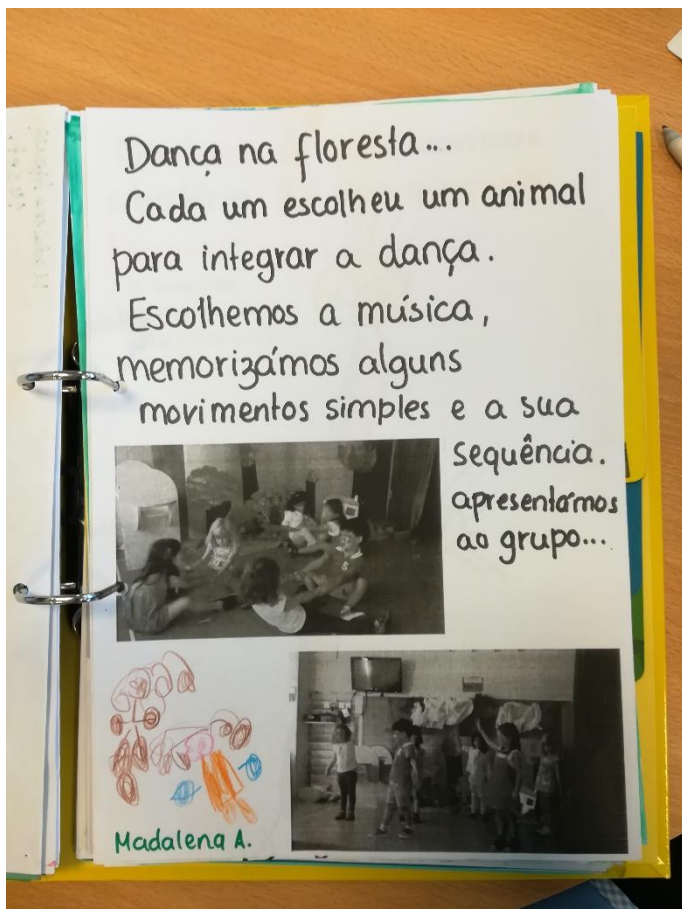 Dança na floresta...
Cada um escolheu um animal
para integrar a dança.
Escolhemos a música,
memorizámos alguns
movimentos simples e a sua
sequência.
apresentámos
ao grupo...
Madalena A.